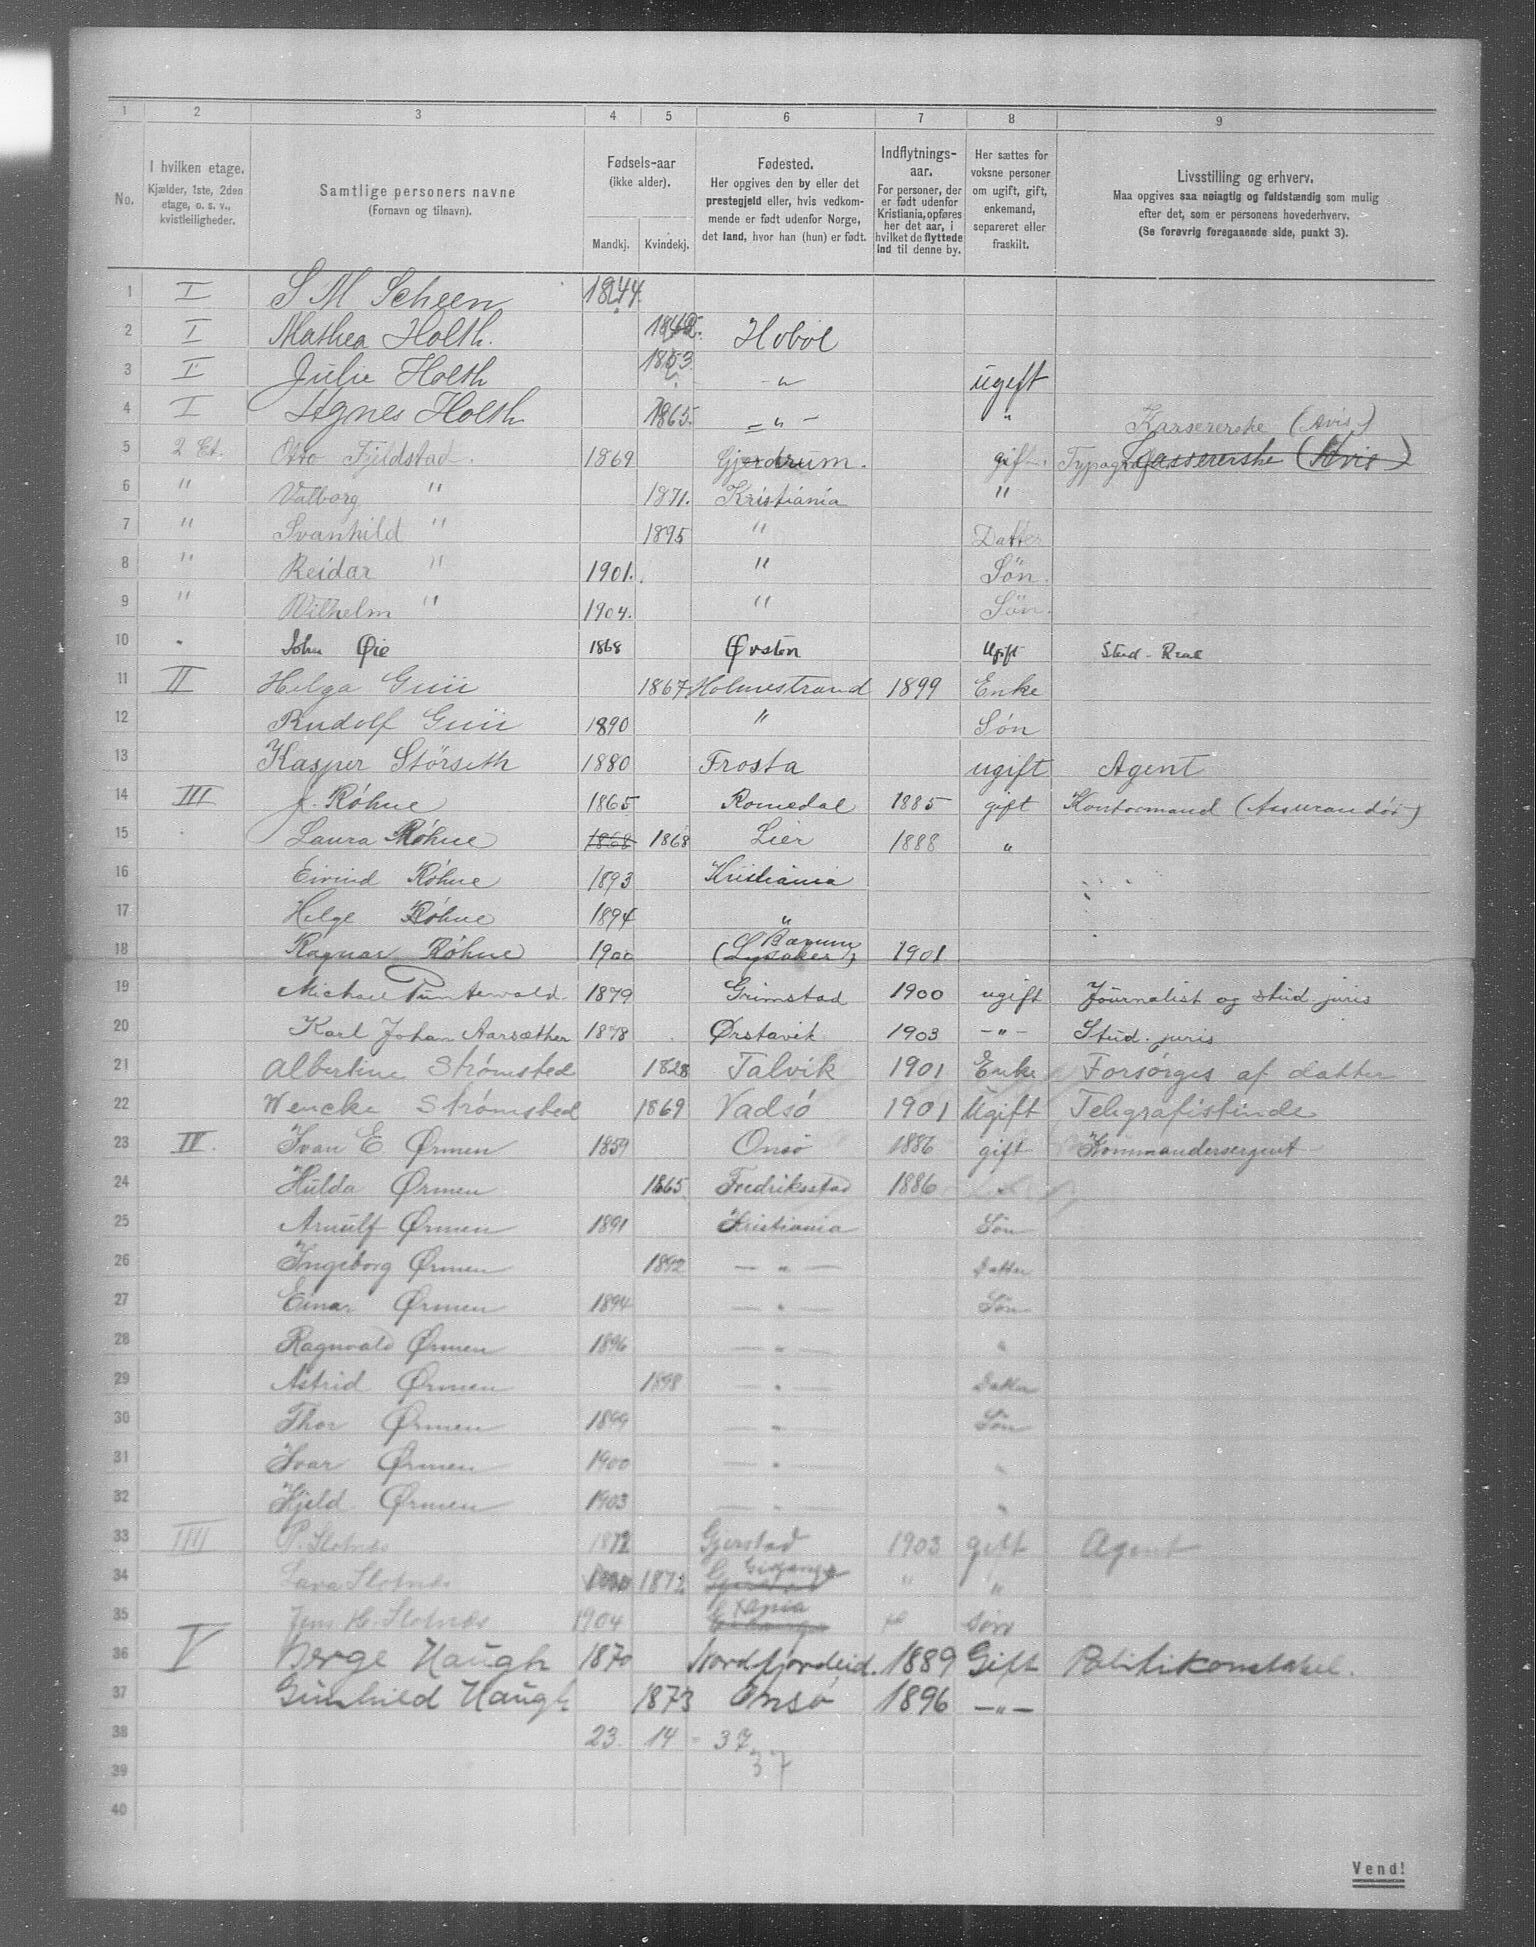 1 2 3 4 5 6 7 8 9
No.
I hvilken etage.
Kjælder, 1ste, 2den
etage, o. s. v.,
kvistleiligheder.
Samtlige personers navne
(Fornavn og tilnavn).
Fødsels-aar
(ikke alder).
Mandkj. Kvindekj.
Fødested.
Her opgives den by eller det
prestegjeld eller, hvis vedkom-
mende er født udenfor Norge,
det land, hvor han (hun) er født.
Indflytnings-
aar.
For personer, der
er født udenfor
Kristiania, opføres
her det aar, i
hvilket de flyttede
ind til denne by.
Her sættes for
voksne personer
om ugift, gift,
enkemand,
separeret eller
fraskilt.
Livsstilling og erhverv.
Maa opgives saa nøiagtig og fuldstændig som mulig
efter det, som er personens hovederhverv.
(Se forøvrig foregaaende side, punkt 3).
1 I S M Scheen 1844.
2 I Mathea Holth. Hobøl
3 I Julie Holth 1853 - " ugift
4 I Agnes Holth 1865. - " - " Kassererske (Avis)
5 2 Et. Otto Fjeldstad. 1869 Gjerdrum. gift. Typograf Cassererske (Avis)
6 " Valborg " 1871. Kristiania "
7 " Svanhild " 1895 " Datter
8 " Reidar " 1901. " Søn.
9 " Wilhelm " 1904. " Søn.
10 " John Øie 1868 Ørsten Ugift Stud. Real
11 II Helga 1867 Holmestrand 1899 Enke
12 Rudolf 1890 " Søn
13 Kasper Størseth 1880 Frosta ugift Agent
14 III J. Røhne 1865 Romedal 1885 gift Kontormand (Assurandør)
15 Laura Røhne 1868 1868 Lier 1888 "
16 Eivind Røhne 1893 Kristiania
17 Helge Røhne 1894 "
18 Ragnar Røhne 1900 Bærum (Lysaker) 1901
19 Michael Puntervold. 1879 Grimstad 1900 ugift Journalist og stud. juris
20 Karl Johan Aarsæther 1878 Ørstavik 1903 - " - Stud. juris
21 Albertine Strømsted 1828 Talvik 1901 Enke Forsørges af datter
22 Wencke Strømsted 1869 Vadsø 1901 Ugift Telegrafistinde
23 IV. Ivan E Ørmen 1859 Onsø 1886 gift Kommandersergent
24 Hulda Ørmen 1865 Fredriksstad 1886
25 Arnulf Ørmen 1891 Kristiania Søn
26 Ingeborg Ørmen 1892 — " — Datter
27 Einar Ørmen 1894 — " — Søn
28 Ragnvald Ørmen 1896 — " — "
29 Astrid Ørmen 1898 — " — Datter
30 Thor Ørmen 1899 — " — Søn
31 Ivar Ørmen 1900 — " — "
32 Kjeld Ørmen 1903 — " — "
33 IIII P. Slotnæs 1872 Gjerstad 1903 gift Agent
34 Lava Slotnæs 1872 " "
35 Jens H. Slotnæs 1904 Xania Søn
36 V Berge Haugh 1870 Nordfjordeid. 1889 Gift Politikonstabel.
37 Gunhild Haugh 1873 Onsø 1896 — " —
38 23. 14 - 37
39 37
40
Vend!